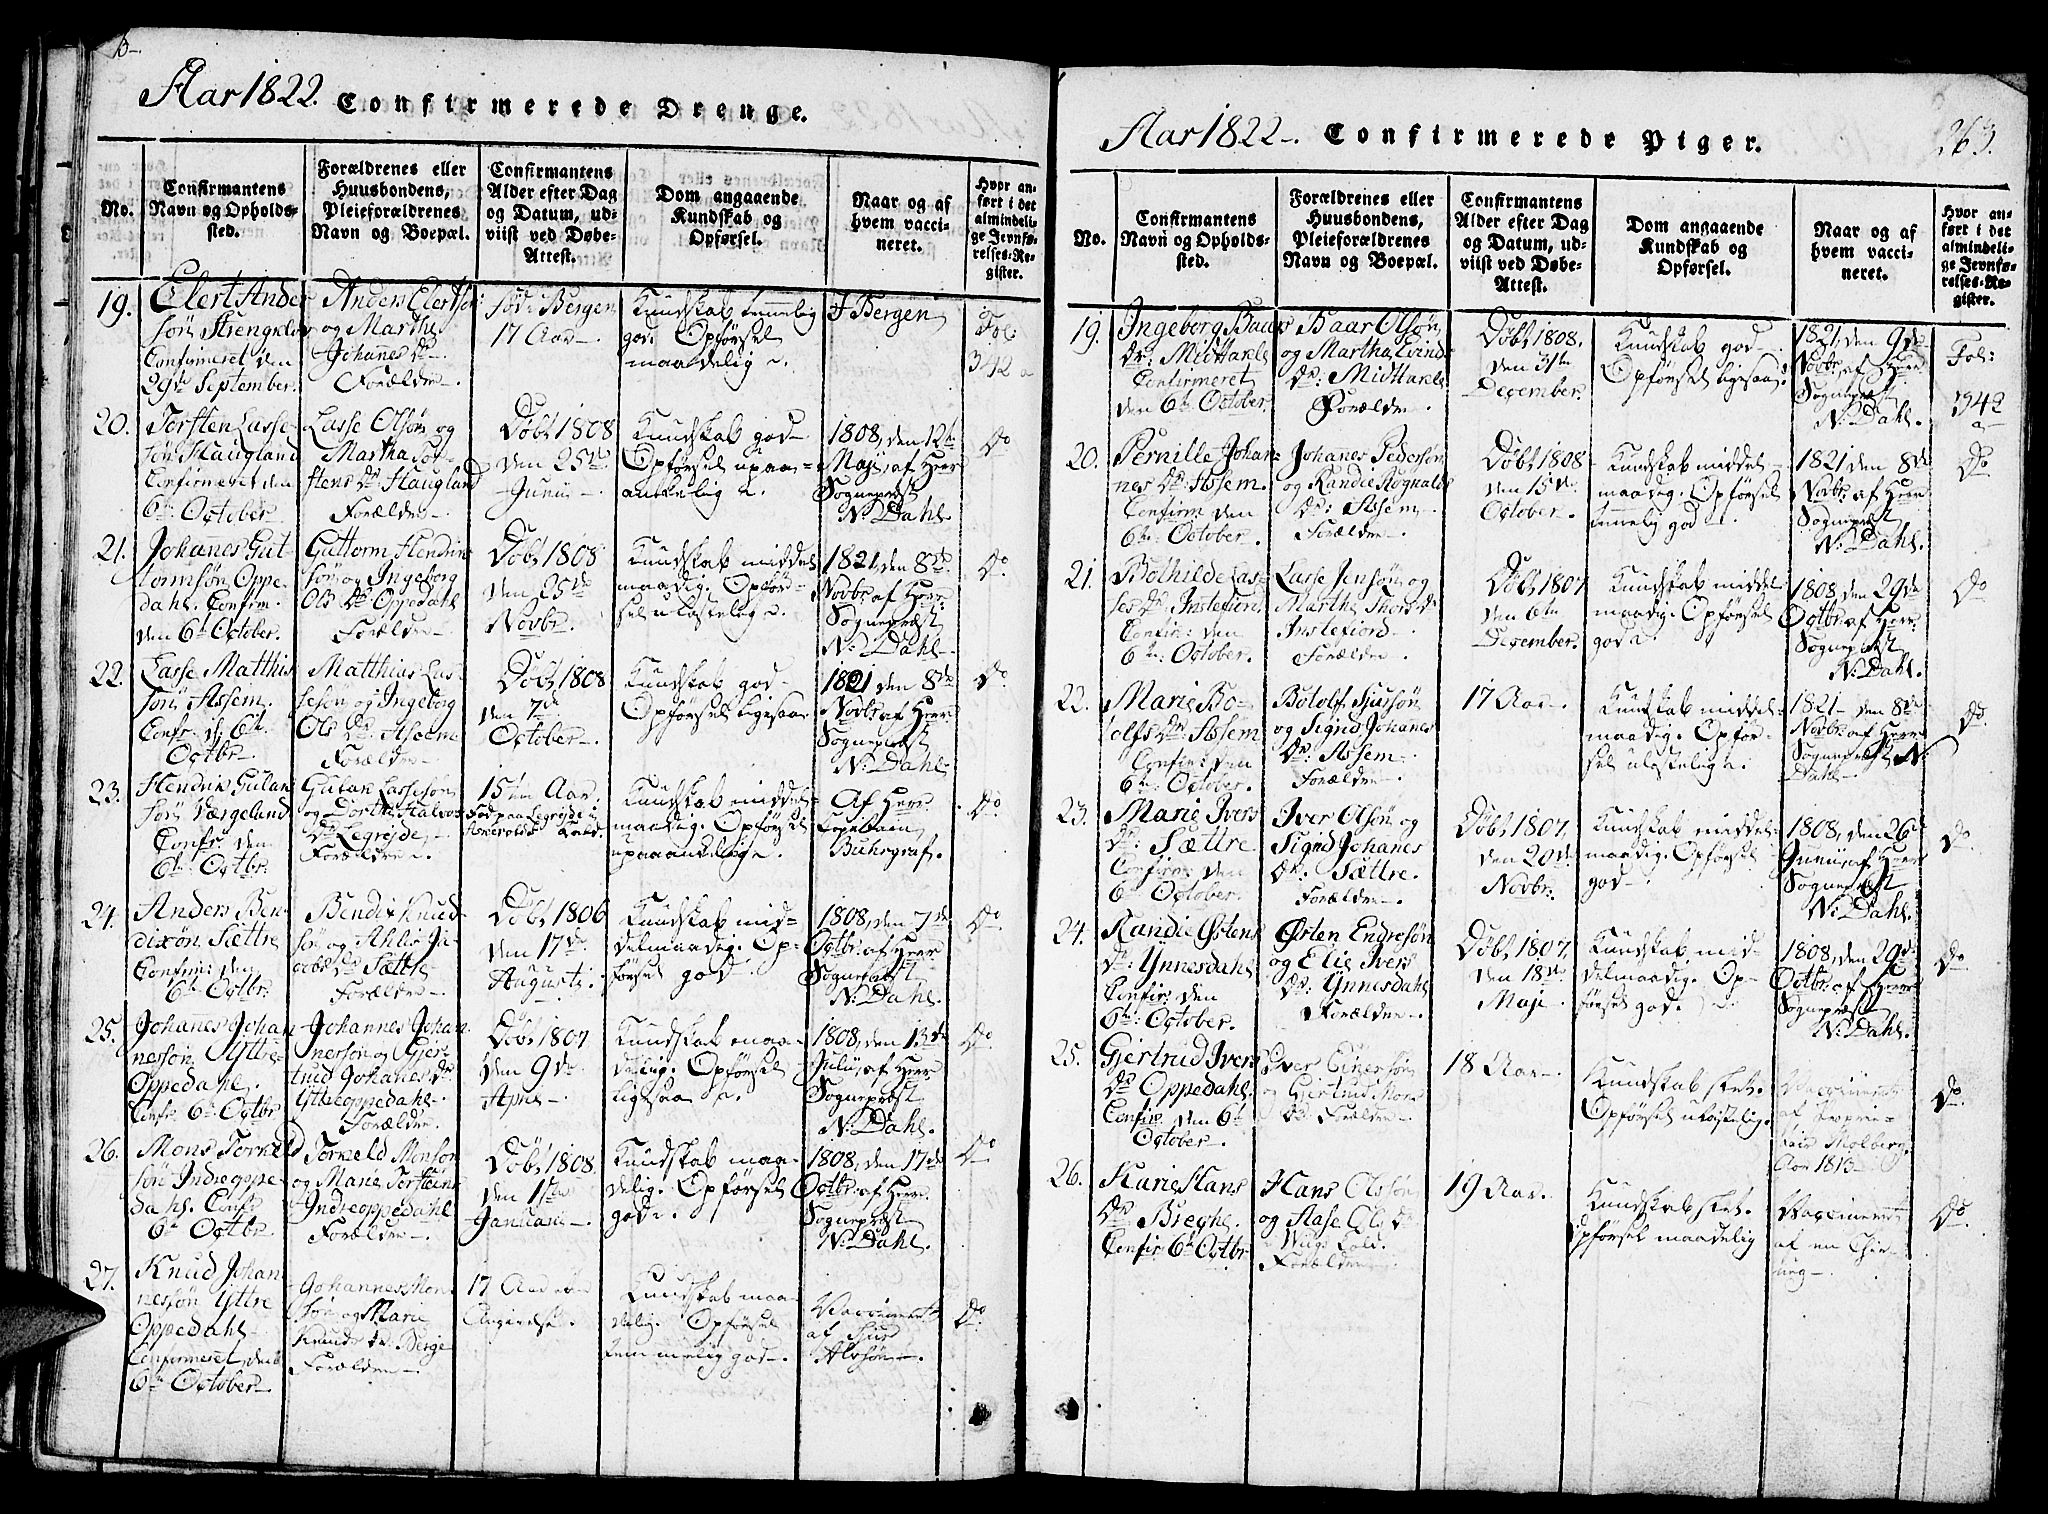 Aar 1822. Confirmerede Drenge.
No.
Confirmantens
Navn og Opholds-
sted.
Forældrenes eller
Huusbondens,
Pleieforældrenes
Navn og Boepæl.
Confirmantens
Alder efter Dag
og Datum, ud-
viist ved Døbe-
Attest.
Dom angaaende
Kundskab og
Opførsel.
Naar og af
hvem vacci-
neret.
Hvor an-
ført i det
almindeli-
ge Jevnfø-
relses-Re-
gister.
19.
Elert Ander
søn
Confirmeret den
29de September.
Anders Elertsøn
og Marthe
Johannes Dr
Forældre
fød: Bergen
17 Aar
Kundskab temmelig
god. Opførsel
maadelig
I Bergen
Fol:
342 a
20.
Torsten Lasse-
søn Haugland
Confirmeret den
6te October
Lasse Olsøn og
Martha Tor-
stens Dr Haugland
Forældre
Døbt 1808
den 25de
Junii
Kundskab god
Opførsel upaa-
ankelig
1808, den 12te
Maji, af Herr
Sognepræst
N: Dahl
Do
21.
Johannes Gut-
tormsøn Oppe-
dahl. Confirm.
den 6te October.
Guttorm Hendrik
søn og Ingeborg
Ols Dr Oppedahl
Forældre
Døbt 1808
den 25de
Novbr.
Kundskab middel
maadig. Opfør-
sel ulastelig
1821, den 8de
Novbr. af Herr
Sognepræst
N: Dahl
Do
22.
Lasse Matthis
søn Assem.
Confr. d: 6te
Octbr
Matthias Las-
sesøn og Ingeborg
Ols Dr Assem
Forældre
Døbt 1808
den 7de
October
Kundskab god
Opførsel ligesaa
1821 den 8de
Novbr af Herr
Sognepræst
N: Dahl
Do
23.
Hendrik Gutan
søn Værgeland
Confr. den
6te Octbr.
Gutak Lassesøn
og Dorthe Halvors
Dr Legreide
Forældre
15 1/2 Aar.
Fød paa Legreide i
Askevolds Kald.
Kundskab middel
maadig. Opførsel
upaaankelig
Af Herr
Capitain
Buhrgraf.
Do
24.
Anders Ben-
dixøn Sættre
Confir: den
6te Octbr.
Bendix Knud
søn og Ahlis Ja-
cobs Dr Sættre
Forældre
Døbt 1806
den 17de
Augusti.
Kundskab mid-
delmaadig. Op-
førsel god
1808, den 7de
Octbr. af Herr
Sognepræst
N: Dahl.
Do
25.
Johanes Johan
nersøn Yttre
Oppedahl.
Confr. 6te Octbr
Johannes Johan
nersøn og Gjer-
trud Johanes Dr
Yttreoppedahl
Forældre
Døbt 1807
den 9de
April
Kundskab maa-
delig. Opførsel
ligesaa
1808, den 13de
Julii, af Herr
Sognepræst
N: Dahl.
Do
26.
Mons Torkield
søn Indreoppe-
dahl. Confr
6te Octbr
Torkield Monsøn
og Marie Torsteins
Indreoppedahl
Forældre
Døbt 1808.
den 17de
Januarii
Kundskab maa-
delig. Opførsel
god
1808, den 17de
Octbr. af Herr
Sognepræst
N: Dahl.
Do
27.
Knud Johan
nessøn Yttre
Oppedahl
Confirmeret, den
6te October
Johannes Mons
søn og Marie
Knuds Dr. Berge
Forældre
17 Aar
Angivelse.
Kundskab maa-
delig. Opførsel
temmelig god
Vaccineret
af Siur
Do
Aar 1822. Confirmerede Piger.
263.
No.
Confirmantens
Navn og Opholds-
sted.
Forældrenes eller
Huusbondens,
Pleieforældrenes
Navn og Boepæl.
Confirmantens
Alder efter Dag
og Datum, ud-
viist ved Døbe-
Attest.
Dom angaaende
Kundskab og
Opførsel.
Naar og af
hvem vacci-
neret.
Hvor an-
ført i det
almindeli-
ge Jevnfø-
relses-Re-
gister.
19.
Ingeborg Baars
Dr: MidHakle
Confirmeret
den 6te October.
Baar Olsøn
og Martha Evinds
Dr: MidHakle
Forældre
Døbt 1808.
den 31te
December.
Kundskab god
Opførsel ligesaa
1821, den 9de
Novbr. af Herr
Sognepræst
N: Dahl.
Fol:
342
a
20.
Pernille Johan-
nes Dr: Assem.
Confirm: den
6te October.
Johanes Pedersøn
og Randie Rognalds
Dr: Assem
Forældre
Døbt 1808
den 15de
October
Kundskab middel
maadig. Opførsel
temmelig god
1821 den 8de
Novbr. af Herr
Sognepræst
N: Dahl.
Do
21.
Bothilde Las-
ses Dr. Instefiord.
Confir: den
6te October.
Lasse Jensøn og
Marthe Thors Dr
Instefiord
Forældre
Døbt 1807
den 6te
December.
Kundskab middel-
maadig. Opførsel
god
1808, den 29de
Octbr. af Herr
Sognepræst
N: Dahl.
Do
22.
Marie Bo-
tolfs Dr: Assem
Confir: den
6te October.
Botolf Siursøn
og Sigrid Johanes
Dr: Assem
Forældre
17 Aar
Kundskab middel-
maadig. Opfør-
sel ulastelig
1821 den 8de
Novbr. af Herr
Sognepræst N:
Dahl
Do
23.
Marie Ivers
Dr. Sættre.
Confirm: den
6te October
Iver Olsøn og
Sigrid Johanes
Dr: Sættre.
Forældre
Døbt 1807.
den 20de
Novbr.
Kundskab middel-
maadig. Opførsel
god
1808, den 26de
Junii, af Herr
Sognepræst
N: Dahl.
Do
24.
Randie Østens
Dr: Ynnesdahl
Confir: den
6te October.
Østen Endresøn
og Elie Ivers
Dr: Ynnesdahl
Forældre
Døbt 1807,
den 18de
Maji
Kundskab mid-
delmaadig. Op-
førsel god.
1808, den 29de
Octbr. af Herr
Sognepræst
N: Dahl.
Do
25.
Gjertrud Ivers
Dr Oppedahl
Confir. den 6te
October
Iver Einersøn
og Gjertrud Mons
Dr Forældre
18 Aar
Kundskab slet.
Opførsel ulastelig.
Vaccineret
af
Molberg
Aar 1813
Do
26.
Kari Hans
Dr Breche.
Confir. 6te Octbr
Hans Olssøn
og Aase Ols Dr
Forældre
19 Aar.
Kundskab slet.
Opførsel maadelig
Vaccineret
af en Chir-
urg
Do